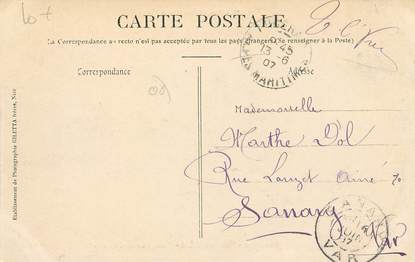 CARTE POSTALE
La Correspondance au recto n'est pas acceptée par tous les pays étrangers (Se renseigner à la Poste)
Correspondance
Adresse
13 -6
07
ALPES MARITIMES
Mademoiselle
Marthe Dol
Rue Lauzet Ainé
Sanary
Var
SANARY
JUIN
07
VAR
Etablissement de Photographie GILETTA frères, Nice